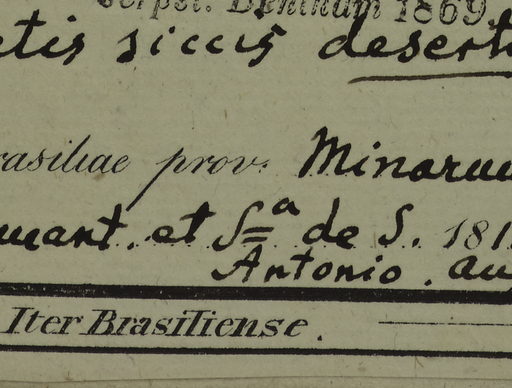 1869.
etis siccis desert
rasiliae prov. Minarum
et Sa de S. 181
Antonio. au
Iter Brasiliense.